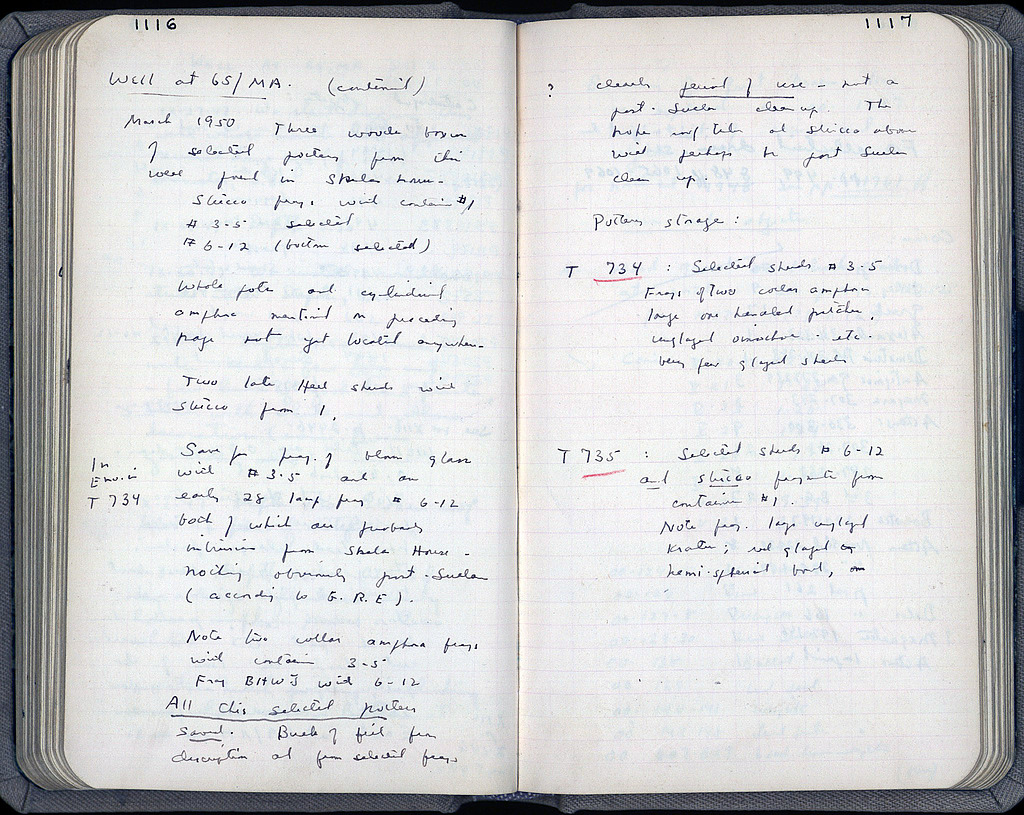 1116
Well at 65/MA. (continued)
March 1950 Three wooden boxes
of selected pottery from this
well found in Skeleton house.
Stucco frags with container #1
# 3-5 selected
# 6-12 (bottom selected)
Whole pots and cylindrical
amphora mentioned on preceding
page not yet located anywhere.
Two late Hell sherds with
stucco from 1,
Save for frag. of blown glass
with # 3-5 and an
In
Envir
T 734
early 28 lamp frag # 6-12
both of which are probably
intrusions from House -
nothing obviously post-Sullan
(according to G. R. E).
Note two collar amphora frags
with container 3-5
Frag BHWJ with 6-12
All this selected pottery
saved. Bulk of fill from
description and from selected frags
1117
? clearly period of use - not a
post-Sullan clean up. The
note of stucco above
will perhaps be post Sullan
clean up.
Pottery storage:
T 734 : Selected sherds # 3-5
Frags of two collar amphora
large one handled pitcher,
unglazed oinochoe etc.
very few glazed sherds
T 735 : Selected sherds # 6-12
and stucco fragments from
container #1.
Note frag. large unglazed
krater; red glazed
hemi-spherical bowl,